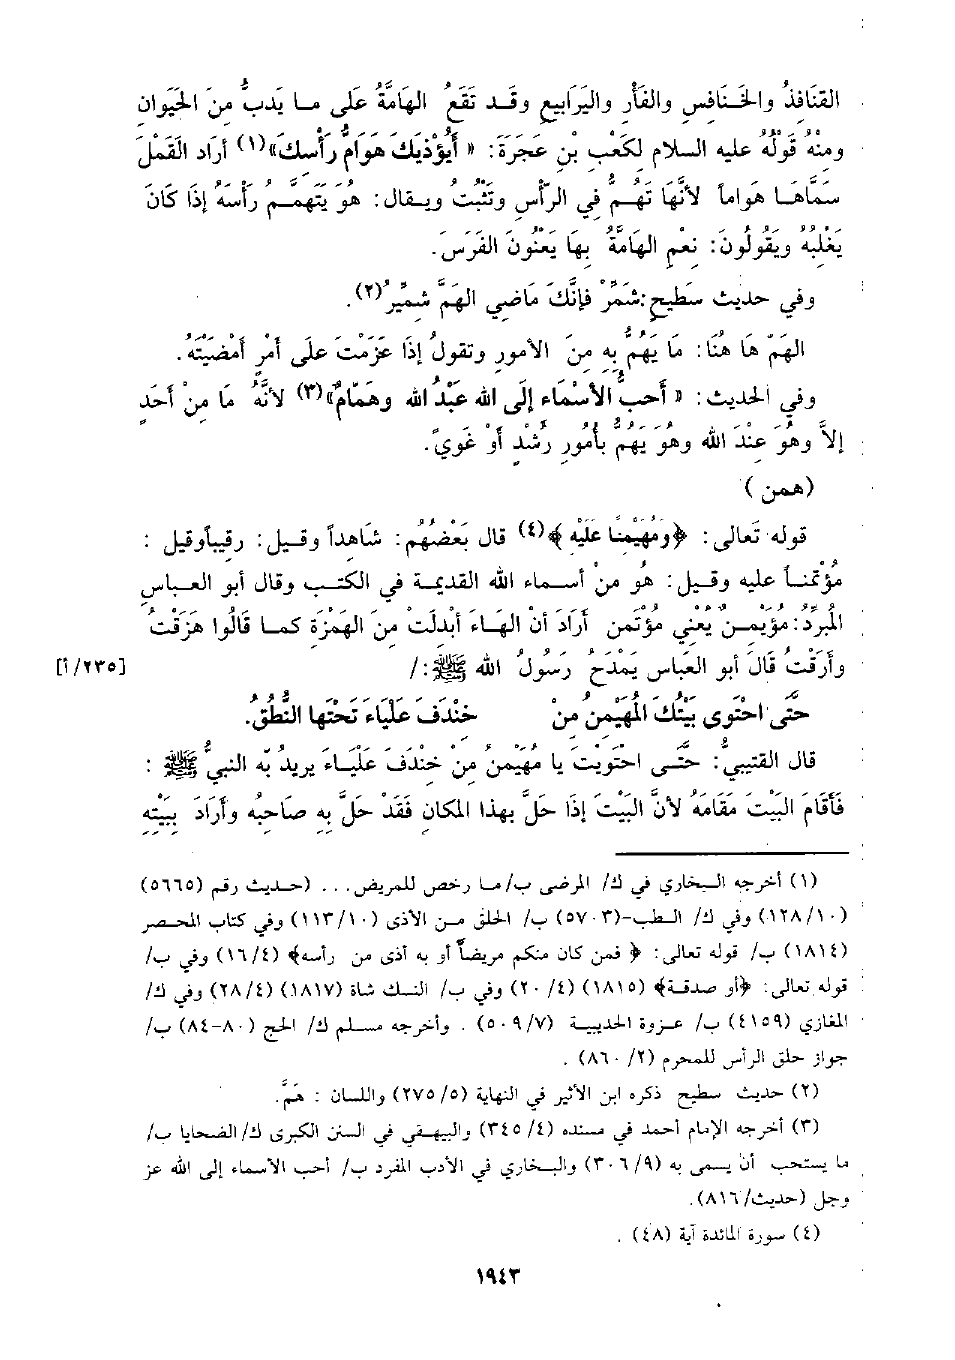 القنافذُ والخنافسِ والفَأْرِ واليَرَابيعِ وقد تَقَعُ الهامَّةُ عَلى ما يَدِبُّ مِنَ الحَيَوانِ
ومنْهُ قَوْلُهُ عليه السلام لِكَعْبِ بنِ عَجَرَةَ: « أَيُؤْذيكَ هَوَامُّ رَأْسِكَ»(١) أرَاد القَمْلَ
سَمَّاهَا هَواماً لأنَّها تَهُمُّ فِي الرأسِ وتَثْبُتُ ويقال: هُوَ يَتَهمَّمُ رَأْسَهُ إذَا كَانَ
يَغْلِبُهُ ويَقُولُونَ: نِعْمَ الهامَّةُ بِهَا يَعْنُونَ الفَرَسَ.
وفي حديث سَطِيحٍ: شَمِّرْ فإنَّكَ مَاضِي الهَمَّ شِمِّيرُ(٢).
الهَمّ هَا هُنَا: مَا يَهُمُّ بِهِ مِنَ الأمورِ وتقولُ إذَا عَزَمْتَ علَى أمْرٍ أمْضَيْتَهُ.
وفي الحديث: « أحَبُّ الأسْمَاءِ إلَى الله عَبْدُ الله وهَمَّامٌ»(٣) لأنَّهُ مَا مِنْ أحَدٍ
إلاَّ وهُوَ عِنْدَ الله وهُوَ يَهُمُّ بأمُورِ رُشْدٍ أوْ غَويٍّ.
(همن)
قوله تَعالى: ﴿وَمُهَيْمِنًا عَلَيْهِ﴾(٤) قال بَعْضُهُم: شَاهداً وقيل: رقيباًوقيل:
مُؤْتمناً عليه وقيل: هُو منْ أسماء الله القديمة في الكتب وقال أبو العباسِ
المُبردُ: مؤَيْمنٌ يَعْني مؤْتَمن أرَادَ أنْ الهَاءَ أبْدلَتْ منَ الهَمْزَة كما قَالُوا هَرَقْتُ
وأرَقْتُ قَالَ أبو العَباسِ يَمْدَحُ رَسُولُ الله ﷺ:/
[٢٣٥/أ]
حتَّى احْتَوى بَيْتُكَ المُهَيْمِنُ مِنْ خِنْدَفَ عَلْيَاءَ تَحْتَها النُّطُقُ.
قال القتيبيُّ: حتَّى احتويتَ يا مُهَيْمنُ مِنْ خِنْدفَ عَلْيَاءَ يريدُ به النبيَّ ﷺ:
فَأقَامَ البَيْتَ مَقَامَهُ لأنَّ البَيْتَ إذَا حَلَّ بهذا المكَانِ فَقَدْ حَلَّ بِهِ صَاحِبُه وأرَادَ بِبَيْتِهِ
(١) أخرجه البخاري في ك/ المرضى ب/ ما رخص للمريض... (حديث رقم (٥٦٦٥)
(١٢٨/١٠) وفي ك/ الطب-(٥٧٠٣) ب/ الحلق من الأذى (١١٣/١٠) وفي كتاب المحصر
(١٨١٤) ب/ قوله تعالى: ﴿ فمن كان منكم مريضاً أو به أذى من رأسه﴾ (١٦/٤) وفي ب/
قوله تعالى: ﴿أو صدقة﴾ (١٨١٥) (٢٠/٤) وفي ب/ النسك شاة (١٨١٧) (٢٨/٤) وفي ك/
المغازي (٤١٥٩) ب/ عزوة الحديبية (٥٠٩/٧) . وأخرجه مسلم ك/ الحج (٨٠-٨٤) ب/
جواز حلق الرأس للمحرم (٨٦٠/٢) .
(٢) حديث سطيح ذكره ابن الأثير في النهاية (٢٧٥/٥) واللسان : هَمَّ.
(٣) أخرجه الإمام أحمد في مسنده (٣٤٥/٤) والبيهقي في السنن الكبرى ك/ الضحايا ب/
ما يستحب أن يسمى به (٣٠٦/٩) والبخاري في الأدب المفرد ب/ أحب الأسماء إلى الله عز
وجل (حديث/٨١٦).
(٤) سورة المائدة آية (٤٨) .
١٩٤٣